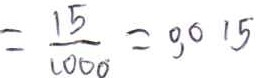 = 15/1000 = 0,015